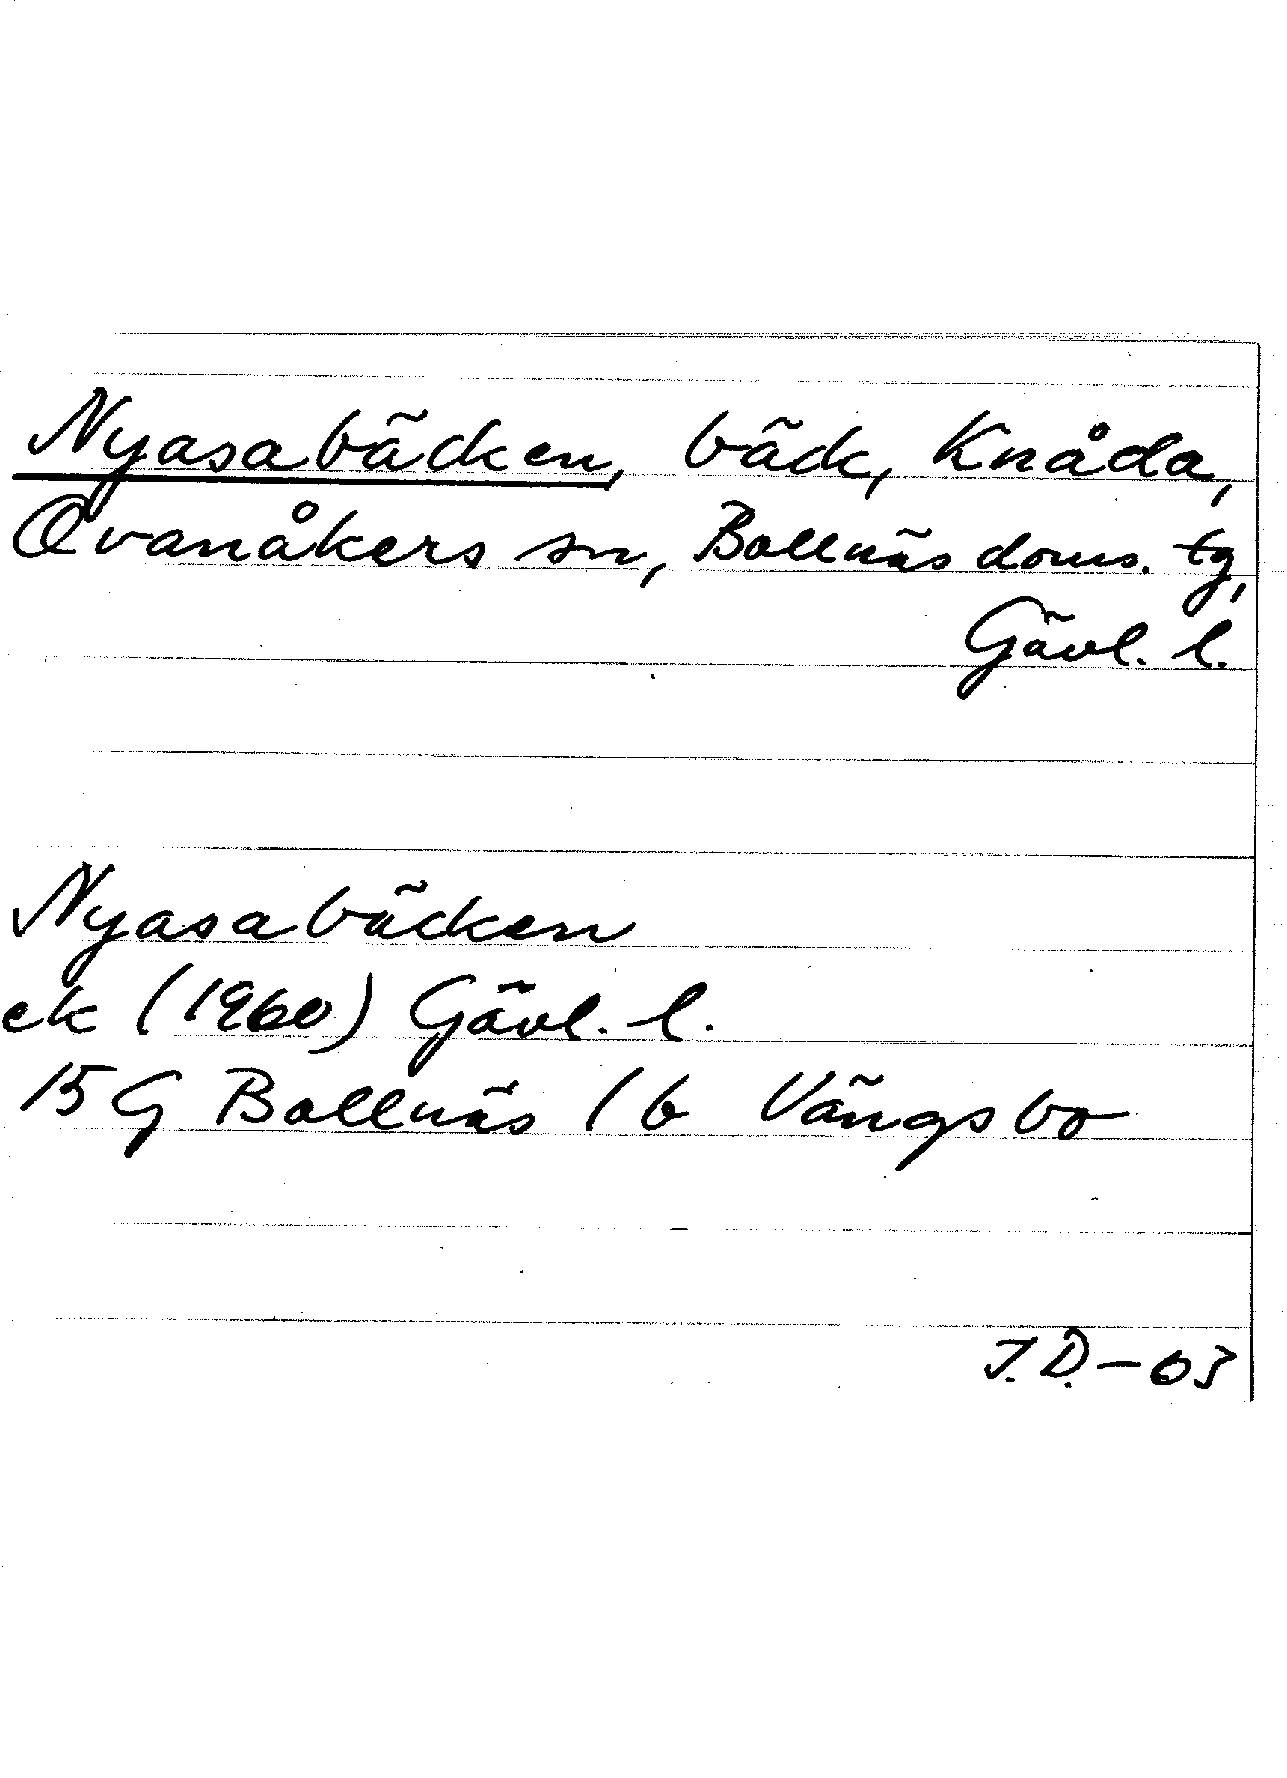 Nyasabäcken, bäck, Knåda,
Ovanåkers sn, Bollnäs doms. tg,
Gävl. l.
Nyasabäcken
ek (1960) Gävl. l.
15 G Bollnäs 1 b Vängsbo
J. D. - 03